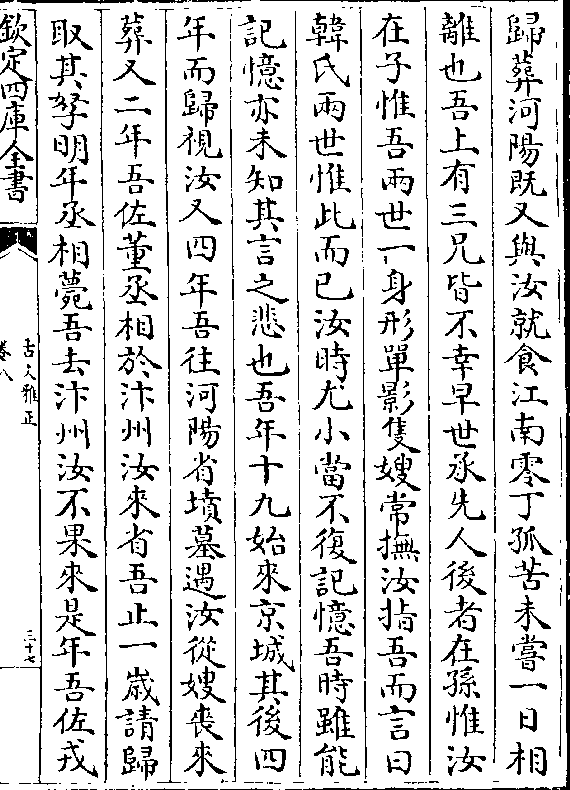 歸葬河陽既又與汝就食江南零丁孤苦未嘗一日相
離也吾上有三兄皆不幸早世承先人後者在孫惟汝
在子惟吾兩世一身形單影隻嫂常撫汝指吾而言曰
韓氏兩世惟此而已汝時尤小當不復記憶吾時雖能
記憶亦未知其言之悲也吾年十九始來京城其後四
年而歸視汝又四年吾往河陽省墳墓遇汝從嫂喪來
葬又二年吾佐董丞相於汴州汝來省吾止一歲請歸
取其孥明年丞相薨吾去汴州汝不果來是年吾佐戎
欽定四庫全書
古文雅正
卷八
三十七